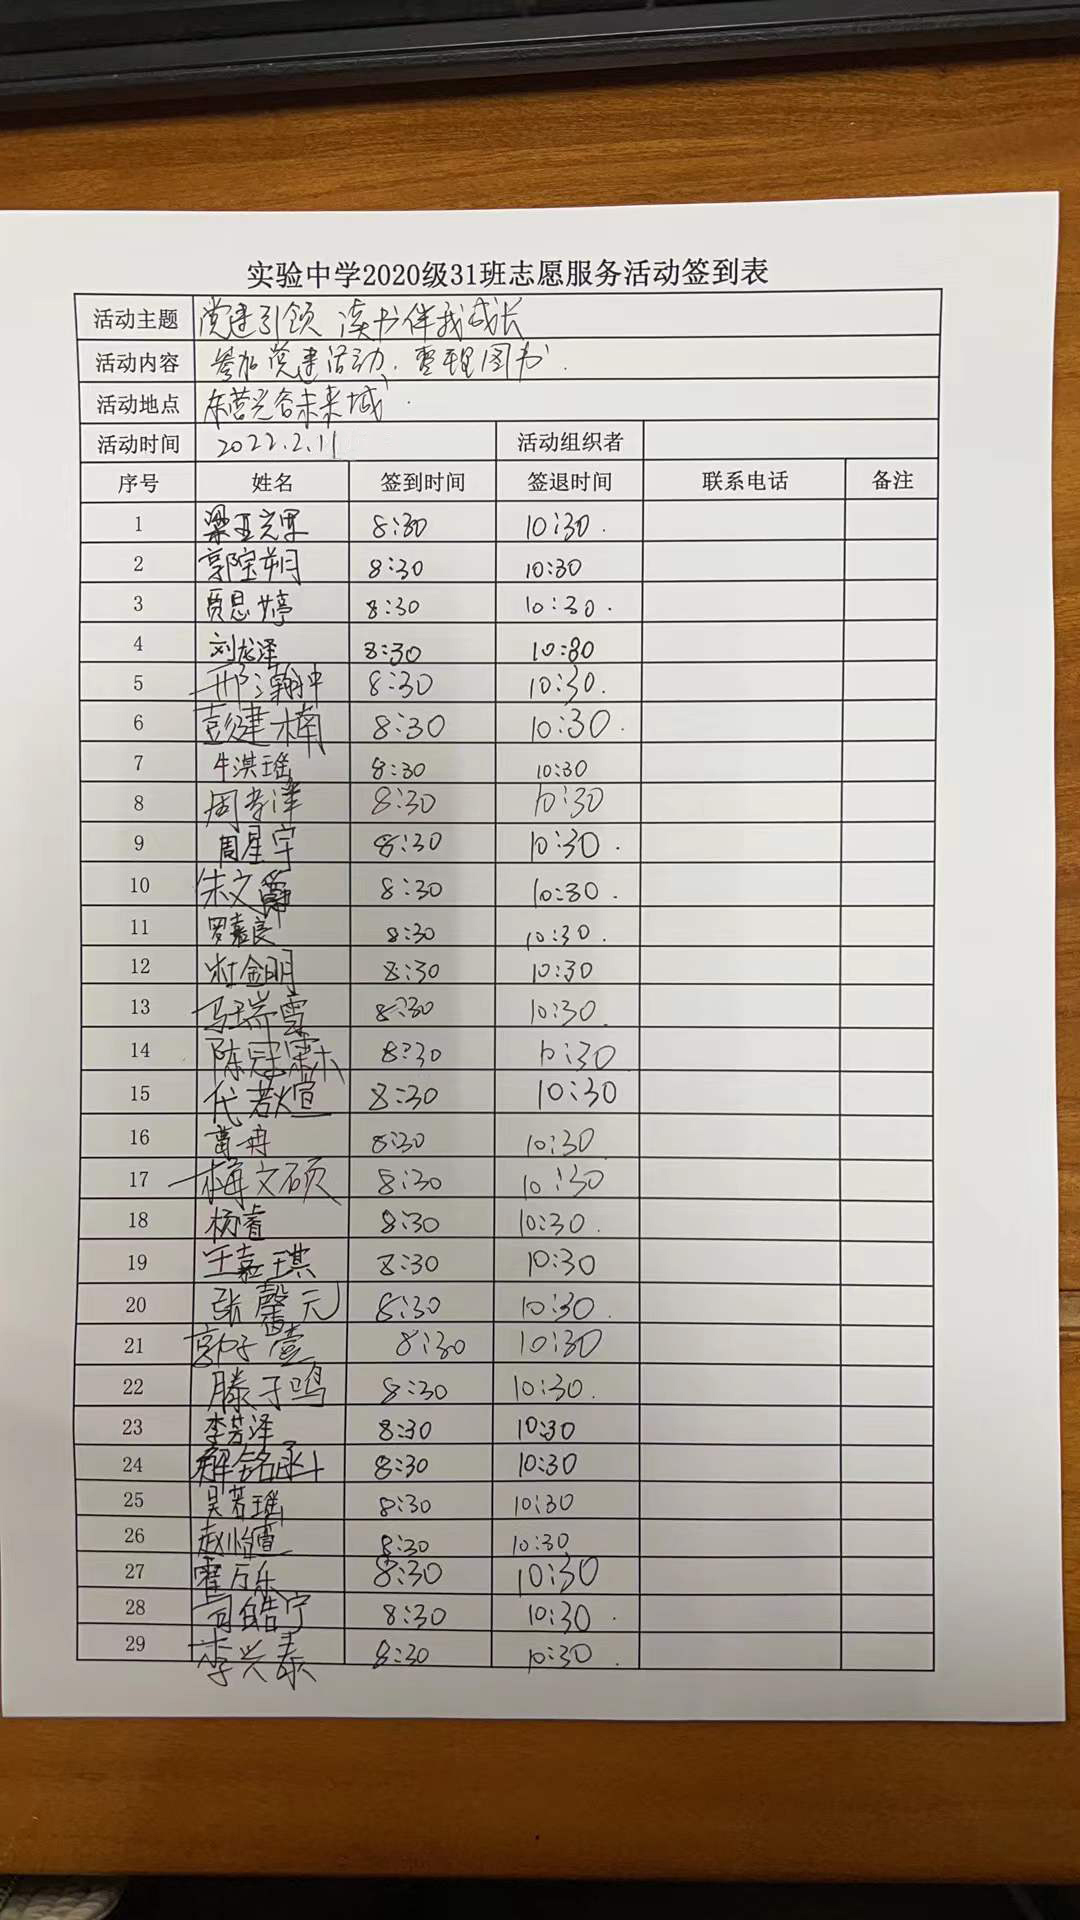 实验中学2020级31班志愿服务活动签到表
活动主题 党建引领 读书伴我成长
活动内容 参加党建活动、整理图书.
活动地点 东营光合未来城.
活动时间 2022.2.11 活动组织者
序号 姓名 签到时间 签退时间 联系电话 备注
1 梁亚克果 8:30 10:30.
2 郭宝朔 8:30 10:30
3 贾思婷 8:30 10:30.
4 刘龙泽 8:30 10:30
5 邢瀚冲 8:30 10:30.
6 彭建楠 8:30 10:30.
7 牛淇瑶 8:30 10:30
8 周孝津 8:30 10:30
9 周星宇 8:30 10:30.
10 朱文爵 8:30 10:30.
11 罗嘉良 8:30 10:30.
12 杜金明 8:30 10:30
13 马瑞雪 8:30 10:30.
14 陈冠霖 8:30 10:30
15 代若煊 8:30 10:30
16 葛冉 8:30 10:30.
17 梅文硕 8:30 10:30
18 杨睿 8:30 10:30.
19 王嘉琪 8:30 10:30
20 张馨元 8:30 10:30.
21 郭子萱 8:30 10:30
22 滕子鸣 8:30 10:30.
23 李芳泽 8:30 10:30
24 解铭 8:30 10:30
25 吴若瑶 8:30 10:30
26 赵怡萱 8:30 10:30
27 霍万乐 8:30 10:30
28 司皓宁 8:30 10:30.
29 李兴泰 8:30 10:30.